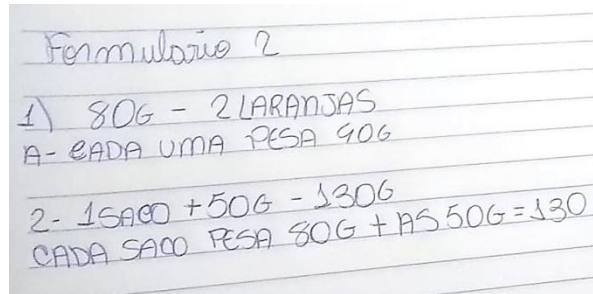 Formulario 2
1) 80G - 2 LARANJAS
A- CADA UMA PESA 40G
2- 1 SACO + 50G - 130G
CADA SACO PESA 80G + AS 50G = 130